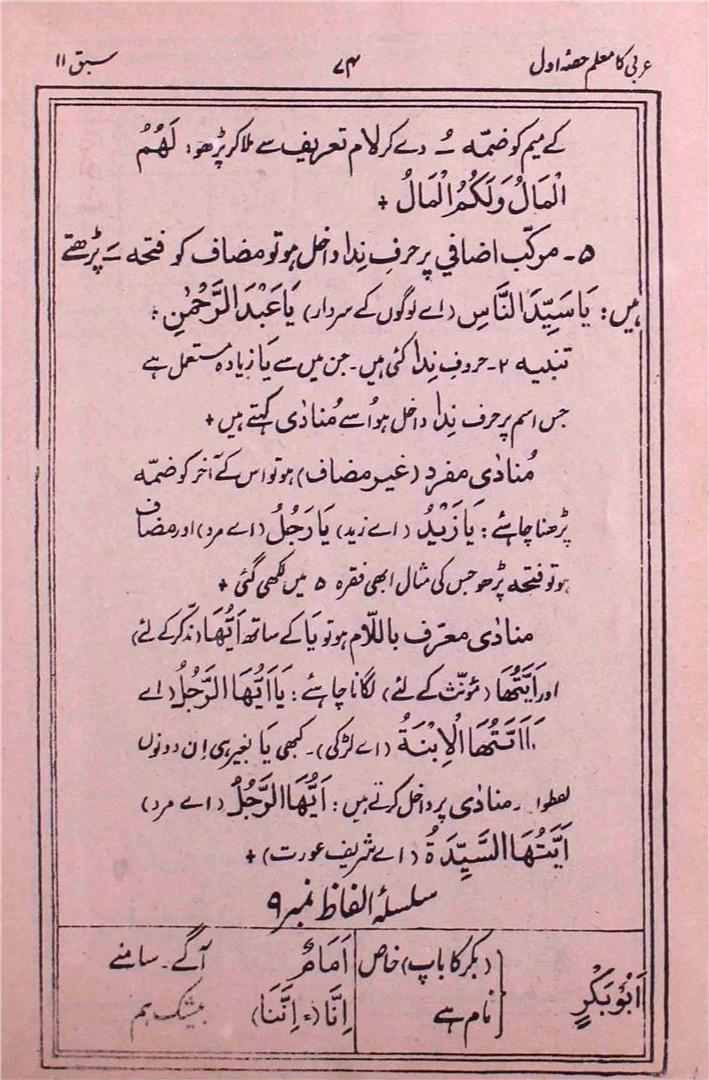 عربی کا معلم حصہ اول ۷۴ سبق ۱۱
کے میم کو ضمّہ ـُ دے کر لام تعریف سے ملا کر پڑھو: لَهُمُ
الْمَالُ وَلَكُمُ الْمَالُ +
۵۔ مرکّب اضافي پر حرفِ نِدا داخل ہو تو مضاف کو فتحہ ـَ پڑھتے
ہیں: يَا سَيِّدَ النَّاسِ (اے لوگوں کے سردار) يَا عَبْدَ الرَّحْمٰنِ :
تنبیہ ۲۔ حروفِ نِدا کئی ہیں۔ جن میں سے یَا زیادہ مستعمل ہے
جس اسم پر حرف نِدا داخل ہو اُسے مُنادٰی کہتے ہیں +
مُنادٰی مفرد (غیر مضاف) ہو تو اس کے آخر کو ضمّہ
پڑھنا چاہئے: يَا زَيْدُ (اے زید) يَا رَجُلُ (اے مرد) اور مضاف
ہو تو فتحہ پڑھو جس کی مثال ابھی فقرہ ۵ میں لکھی گئی +
منادٰی معرّف باللّام ہو تو یا کے ساتھ اَيُّهَا (مذکّر کے لئے)
اور اَيَّتُهَا (مؤنّث کے لئے) لگانا چاہئے: يَا اَيُّهَا الرَّجُلُ (اے
اَيَّتُهَا الْاِبْنَةُ (اے لڑکی)۔ کبھی یا بغیر ہی اِن دونوں
منادٰی پر داخل کرتے ہیں: اَيُّهَا الرَّجُلُ (اے مرد)
اَيَّتُهَا السَّيِّدَةُ (اے شریف عورت) +
سلسلۂ الفاظ نمبر ۹
اَبُوْ بَكْرٍ (بکر کا باپ) خاص نام ہے
اَمَامٌ آگے۔ سامنے
اِنَّا (= اِنَّنَا) بیشک ہم